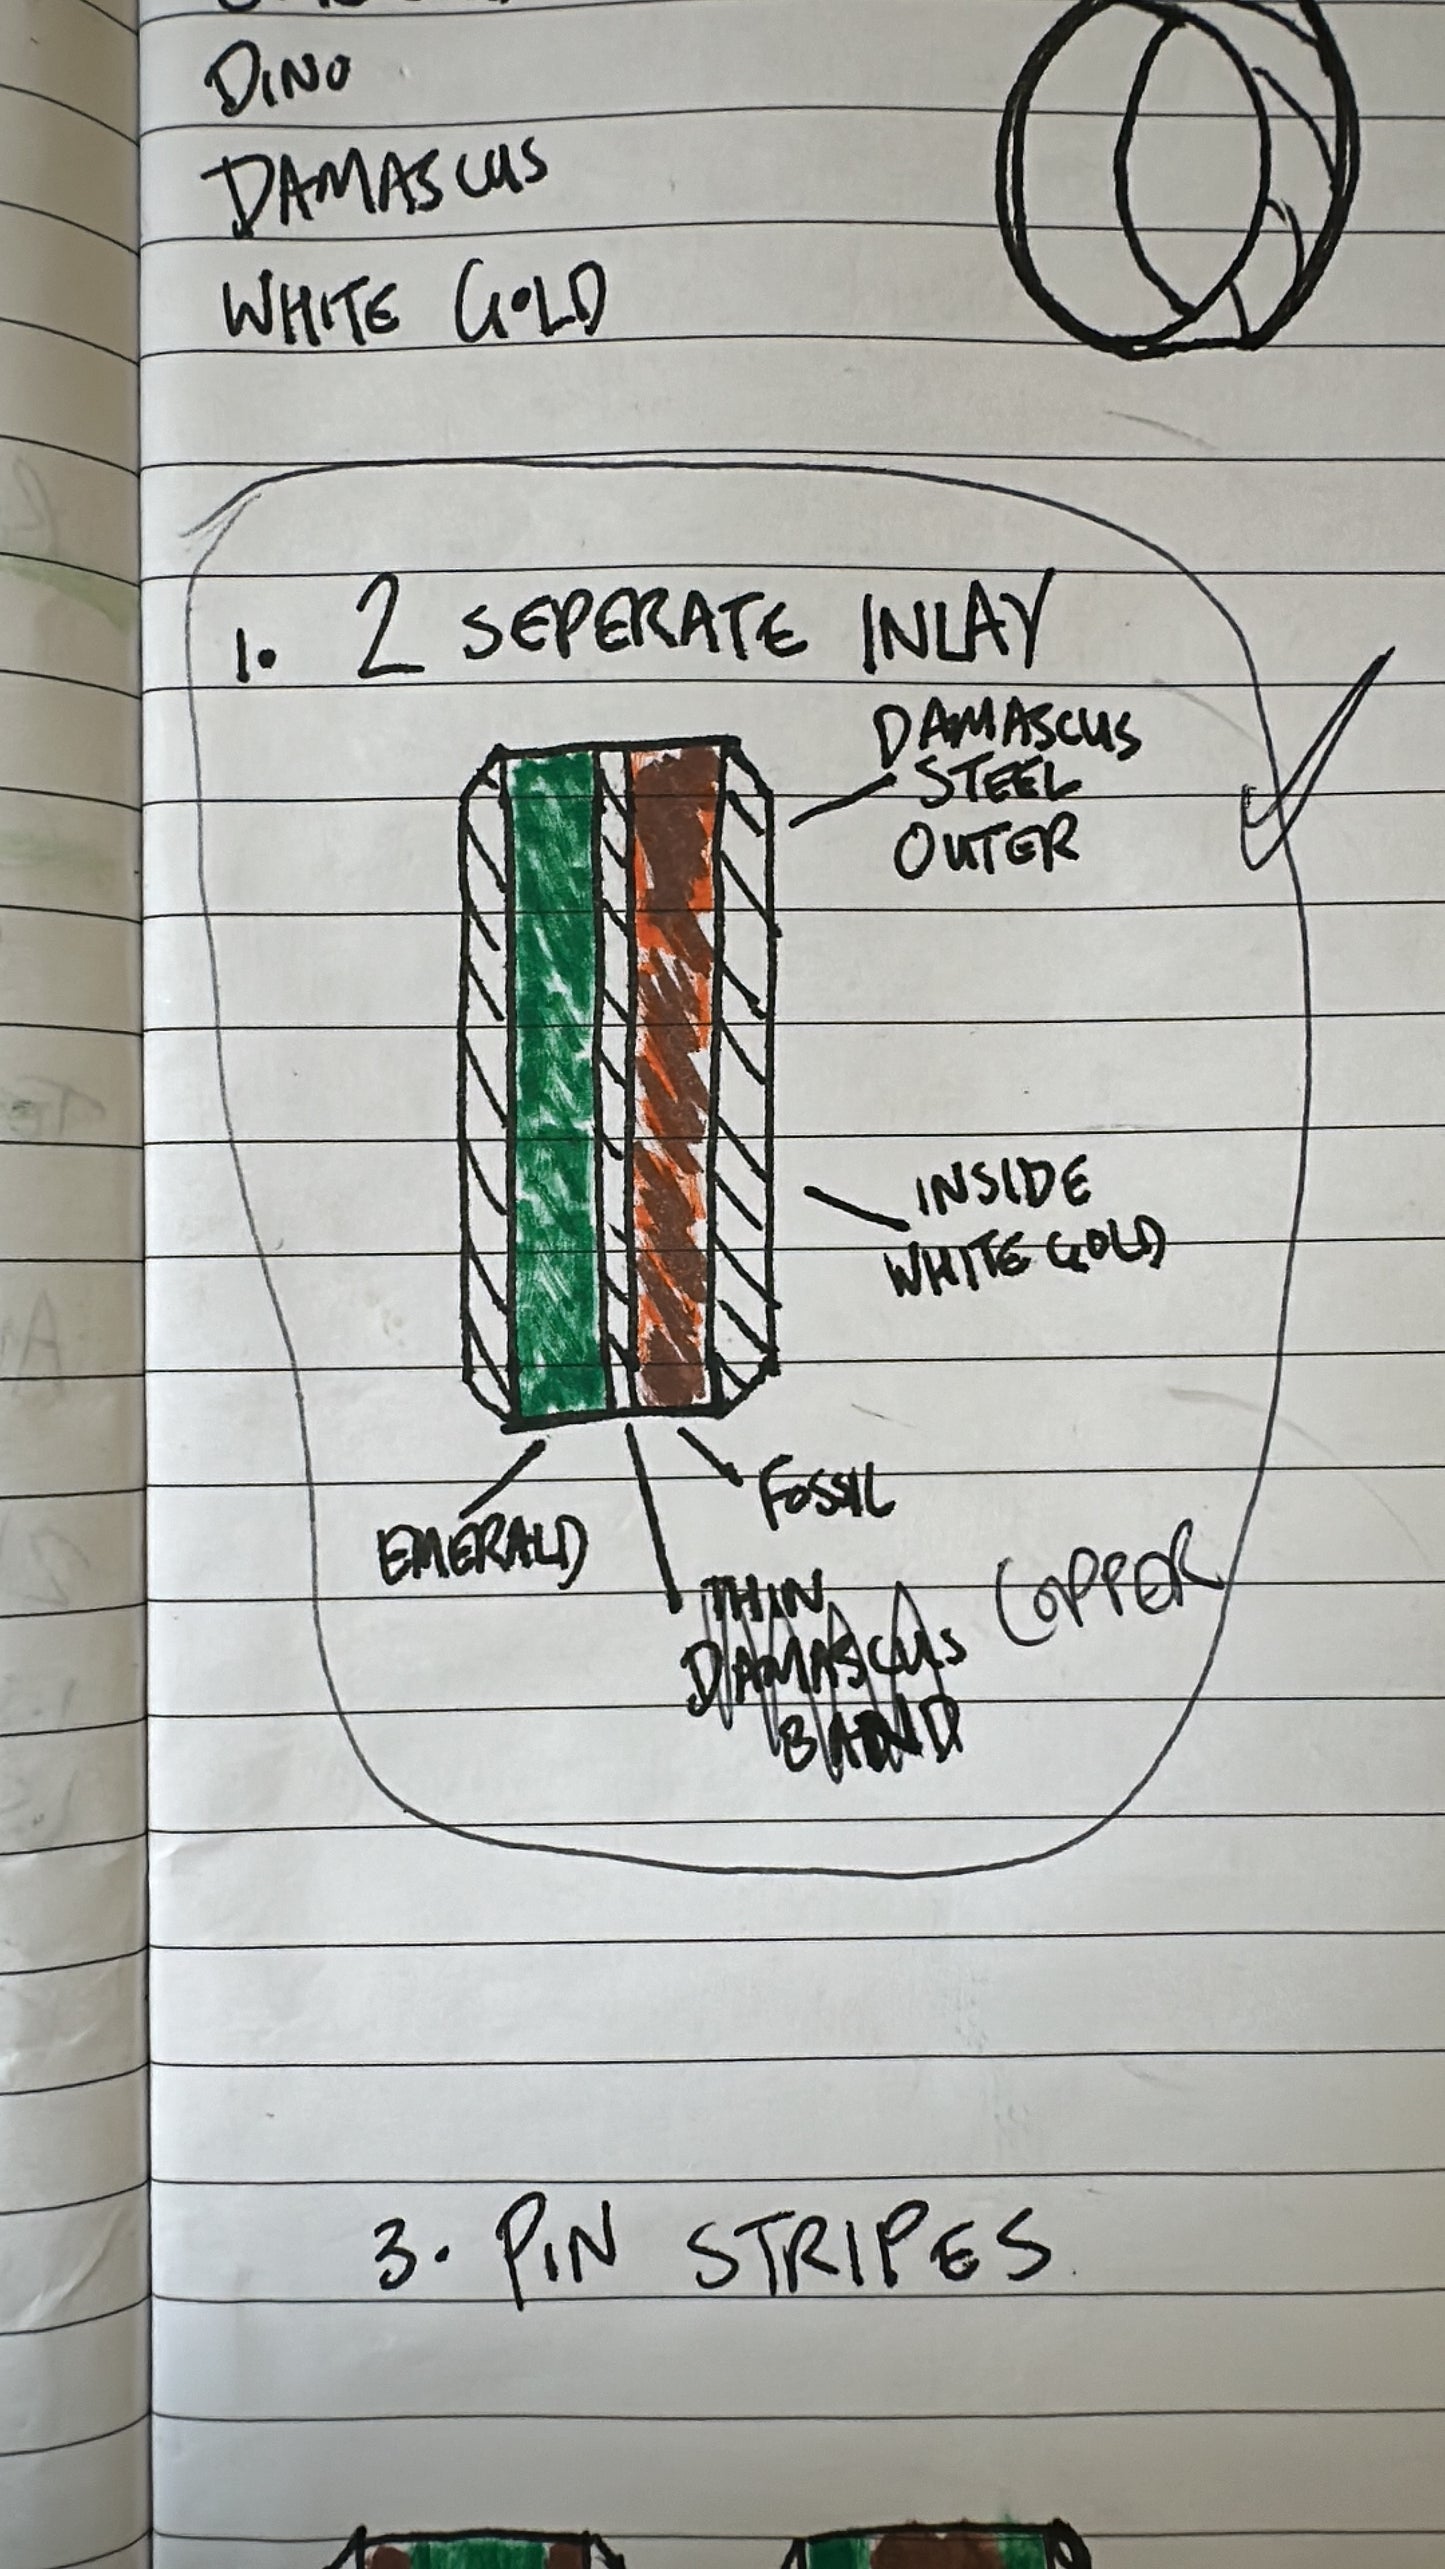 DINO
DAMASCUS
WHITE GOLD
1. 2 SEPERATE INLAY
DAMASCUS
STEEL
OUTER
INSIDE
WHITE GOLD
FOSSIL
EMERALD
THIN COPPER
DAMASCUS
BAND
3. PIN STRIPES